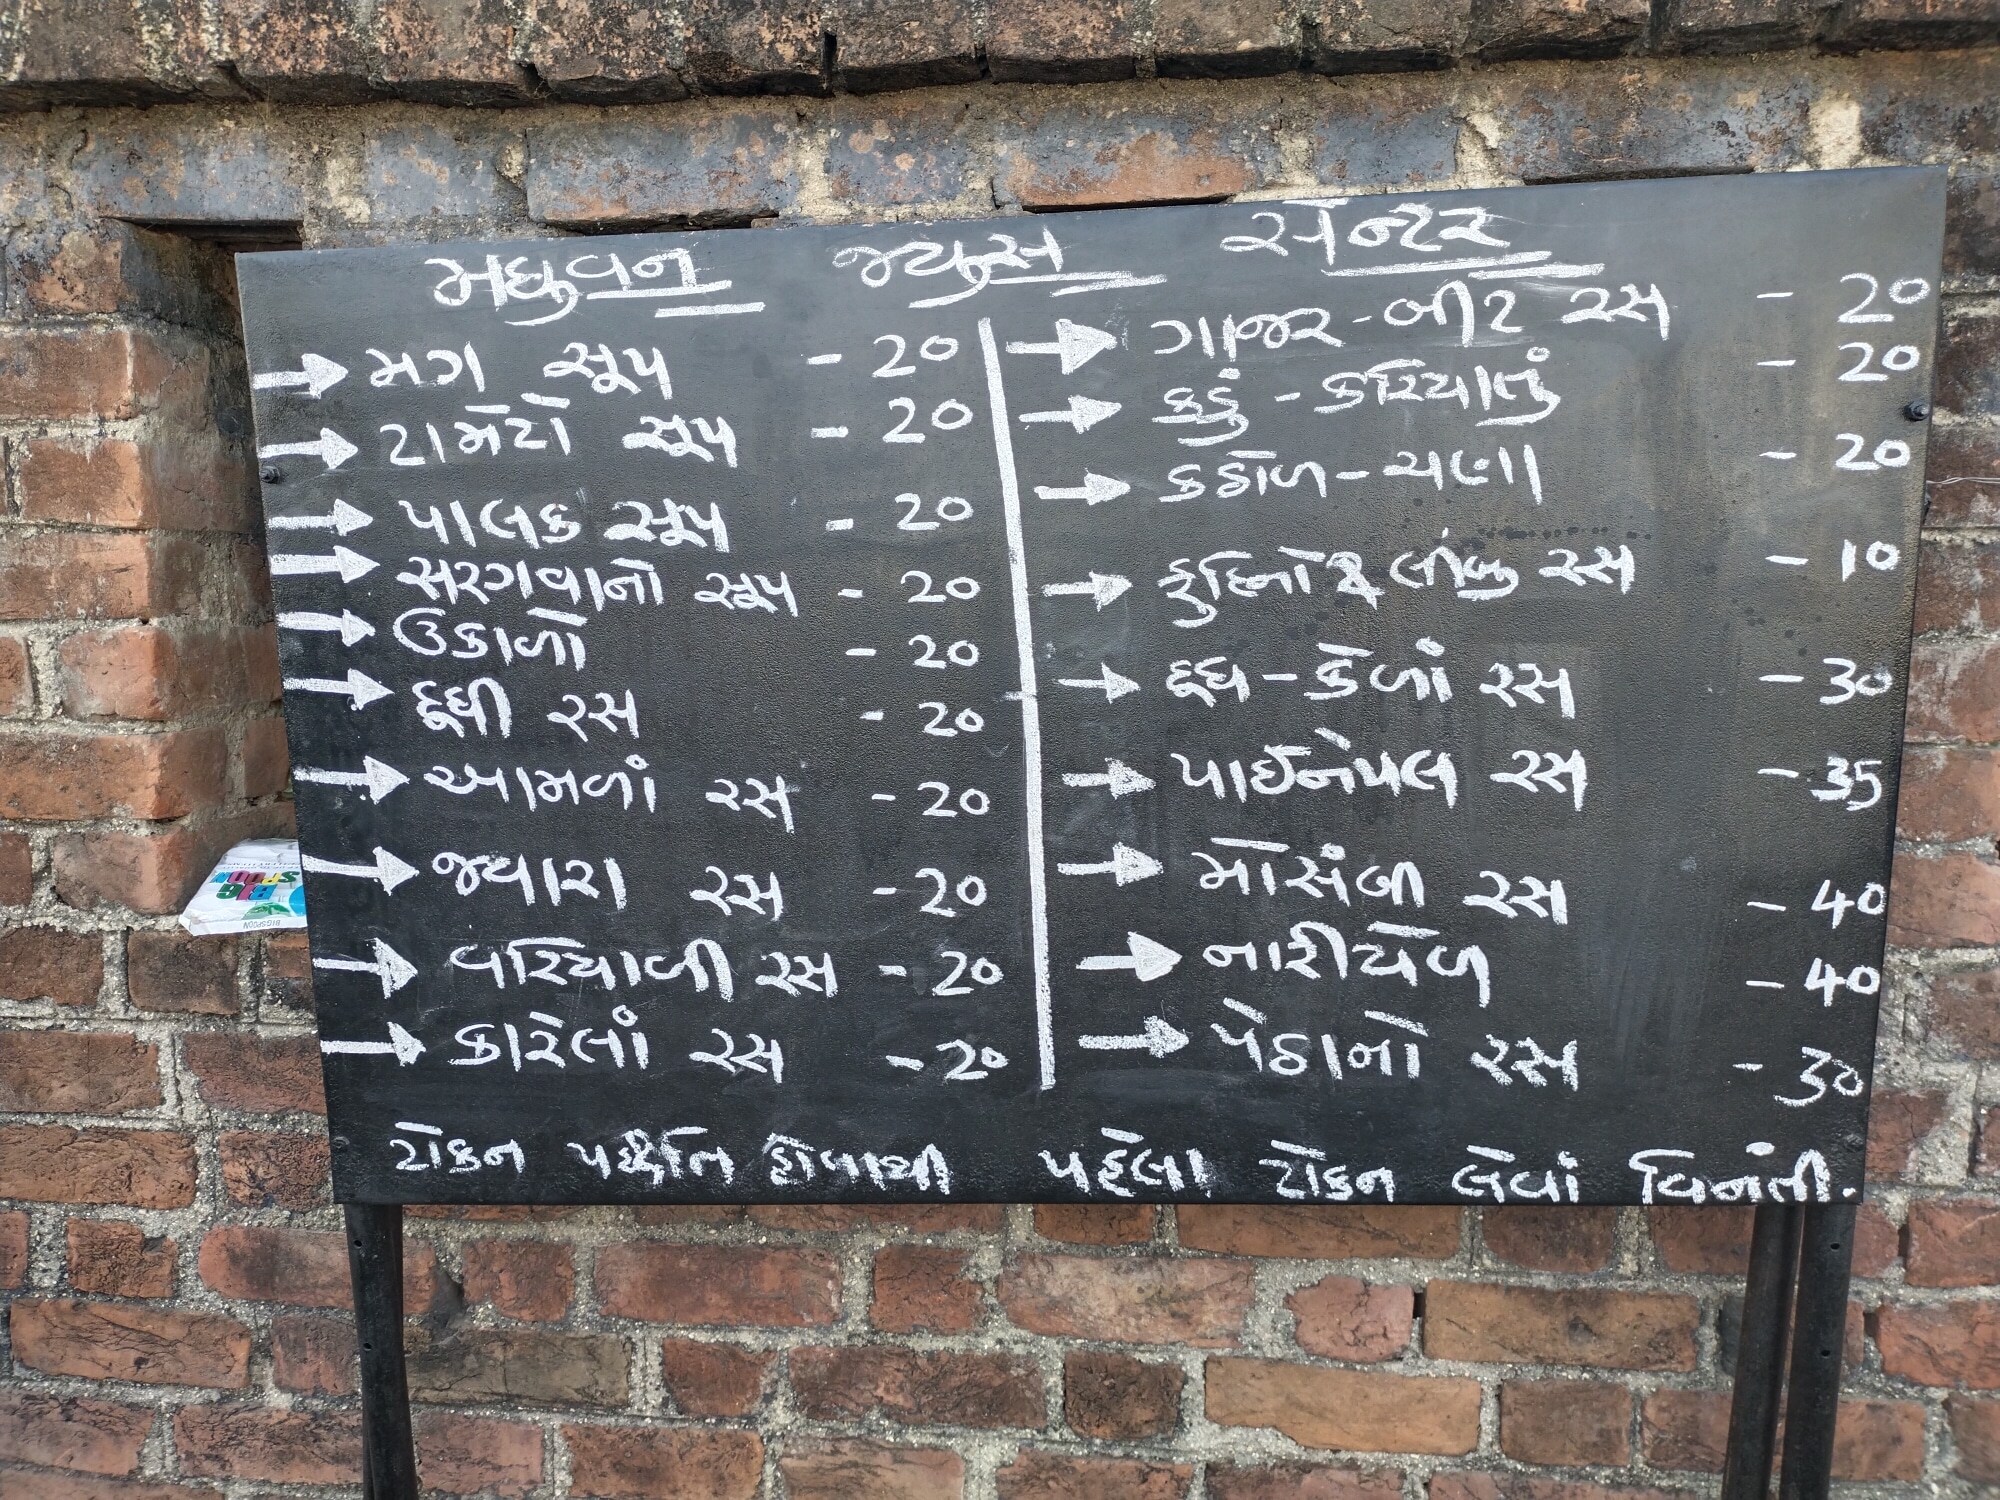 મધુવન જ્યુસ સેન્ટર
મગ સૂપ - 20
ટામેટો સૂપ - 20
પાલક સૂપ - 20
સરગવાનો સૂપ - 20
ઉકાળો - 20
દૂધી રસ - 20
આમળાં રસ - 20
જ્વારા રસ - 20
વરિયાળી રસ - 20
કારેલાં રસ - 20
ગાજર-બીટ રસ - 20
કડું - કરિયાતું - 20
કઠોળ - ચણા - 20
ફુદિનો લીંબુ રસ - 10
દૂધ - કેળાં રસ - 30
પાઈનેપલ રસ - 35
મોસંબી રસ - 40
નારીયેળ - 40
પેઠાનો રસ - 30
ટોકન પધ્ધતિ હોવાથી પહેલા ટોકન લેવાં વિનંતી.
BIG SPOON
BIGSPOON